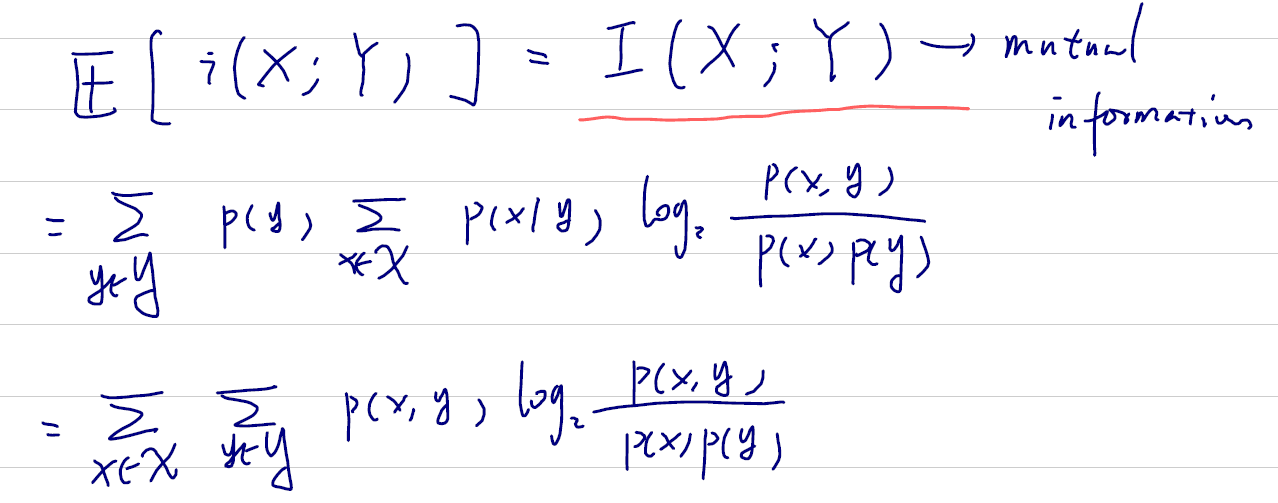 𝔼[i(X;Y)] = I(X;Y) → mutual information
= ∑_{y∈𝒴} p(y) ∑_{x∈𝒳} p(x|y) log₂ \frac{p(x,y)}{p(x)p(y)}
= ∑_{x∈𝒳} ∑_{y∈𝒴} p(x,y) log₂ \frac{p(x,y)}{p(x)p(y)}